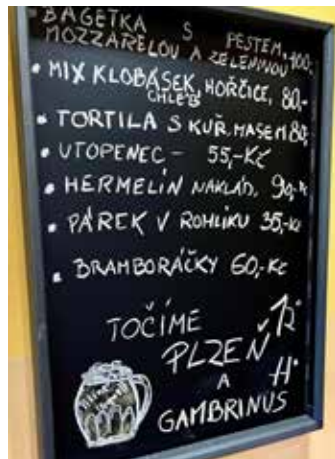 BAGETKA S PESTEM,
MOZZARELOU A ZELENINOU 100,-
• MIX KLOBÁSEK, HOŘČICE, 80,-
CHLÉB
• TORTILA S KUŘ. MASEM 80,-
• UTOPENEC - 55,-Kč
• HERMELÍN NAKLÁD. 90,-Kč
• PÁREK V ROHLÍKU 35,-Kč
• BRAMBORÁČKY 60,-Kč
TOČÍME
PLZEŇ 12°
A
GAMBRINUS 11°